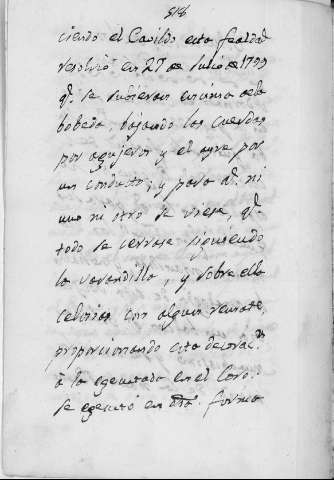 516
ciendo el Cavildo esta fealdad
resolvió en 27 de Julio de 1799
qe. se subieran encima de la
bobeda, bajando las cuerdas
por agujeros y el ayre por
un conducto; y para qe. ni
uno ni otro se viese, qe.
todo se cerrase siguiendo
la varandilla, y sobre ella
celosias con algun remate,
proporcionando esta decorac.n
à la egecutada en el Coro:
se egecutó en dha. forma